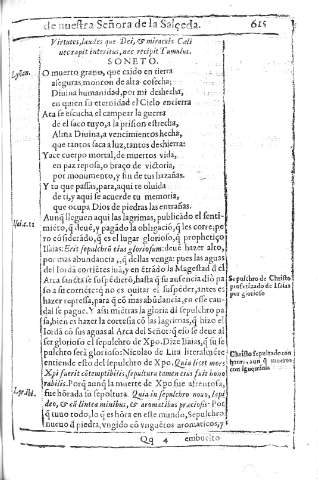 de nuestra Señora de la Salçeda. 615
Virtutes, laudes que Dei, & miracula Cæli
nec capit interitus, nec recipit Tumulus.
SONETO.
O muerto grano, que caido en tierra
aseguras monton de alta cosecha;
Diuina humanidad, por mi deshecha,
en quien su eternidad el Cielo encierra
Aca se escucha, el campear la guerra
de el saco tuyo, a la prision estrecha,
Alma Diuina, a vencimientos hecha,
que tantos saca a luz, tantos deshierra:
Yace cuerpo mortal, de muertos vida,
en paz reposa, o braço de victoria,
por monumento, y fin de tus hazañas.
Y tu que passas, para, aqui te oluida
de ti, y aqui se acuerde tu memoria,
que ocupa Dios de piedras las entrañas.
Aunq̃ lleguen aqui las lagrimas, publicãdo el senti-
miẽto, q̃ deuẽ, y pagãdo la obligaciõ, q̃ les corre; pe
ro cõsiderãdo, q̃ es el lugar glorioso, q̃ prophetiço
Isaias: Erit sepulchrũ eius gloriosum: deuẽ hazer alto,
por mas abundancia, q̃ dellas venga: pues las aguas
del Iordã corriẽtes iuã, y en ẽtrãdo la Magestad dl̃
Arca sancta se suspẽdierõ, hasta q̃ su ausencia diò pa
so a su corriẽte; q̃ no es quitar el suspẽder, antes es
hazer represa, para q̃ cõ mas abũdancia, en esse cau-
dal se pague. Y asi miẽtras la gloria dl̃ sepulchro pa
sa, bien es hazer la cortesia cõ las lagrimas, q̃ hizo el
Iordã cõ sus aguas al Arca del Señor: q̃ eso se deue al
ser glorioso el sepulchro de Xpo. Dize Isaias, q̃ su se
pulchro serà glorioso: Nicolao de Lira literal mẽte
entiende esto del sepulchro de Xpo. Quia licet mors
Xpi fuerit cõtemptibilis, sepultura tamen eius fuit hono
rabilis. Porq̃ aunq̃ la muerte de Xpo fue afrentosa,
fue hõrada su sepoltura. Quia in sepulchro nouo, sepe-
deo, & cũ lintea minibus, & aromatibus præciosis: Por
q̃ uuo todo, lo q̃ es hõra en este mundo, Sepulchro
nueuo d̃ piedra, vngido cõ vnguẽtos aromaticos, y
Qq 4 embuelto
Isai. c. 11
Sepulchro de Christo
profetizado de Isaias
por glorioso
Christo sepultado con